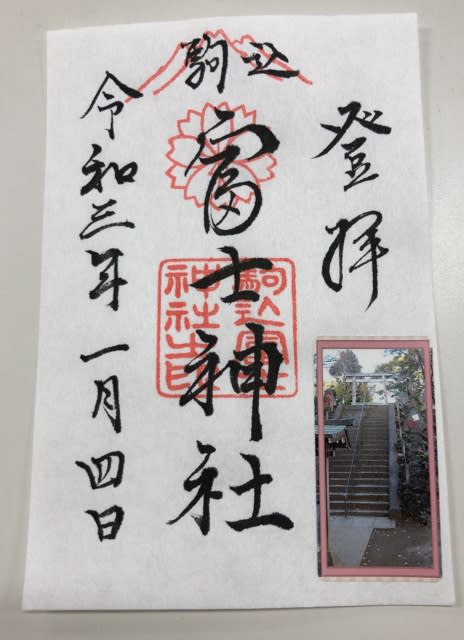 登拝
駒込
富士神社
駒込富士
神社印
令和三年 一月四日